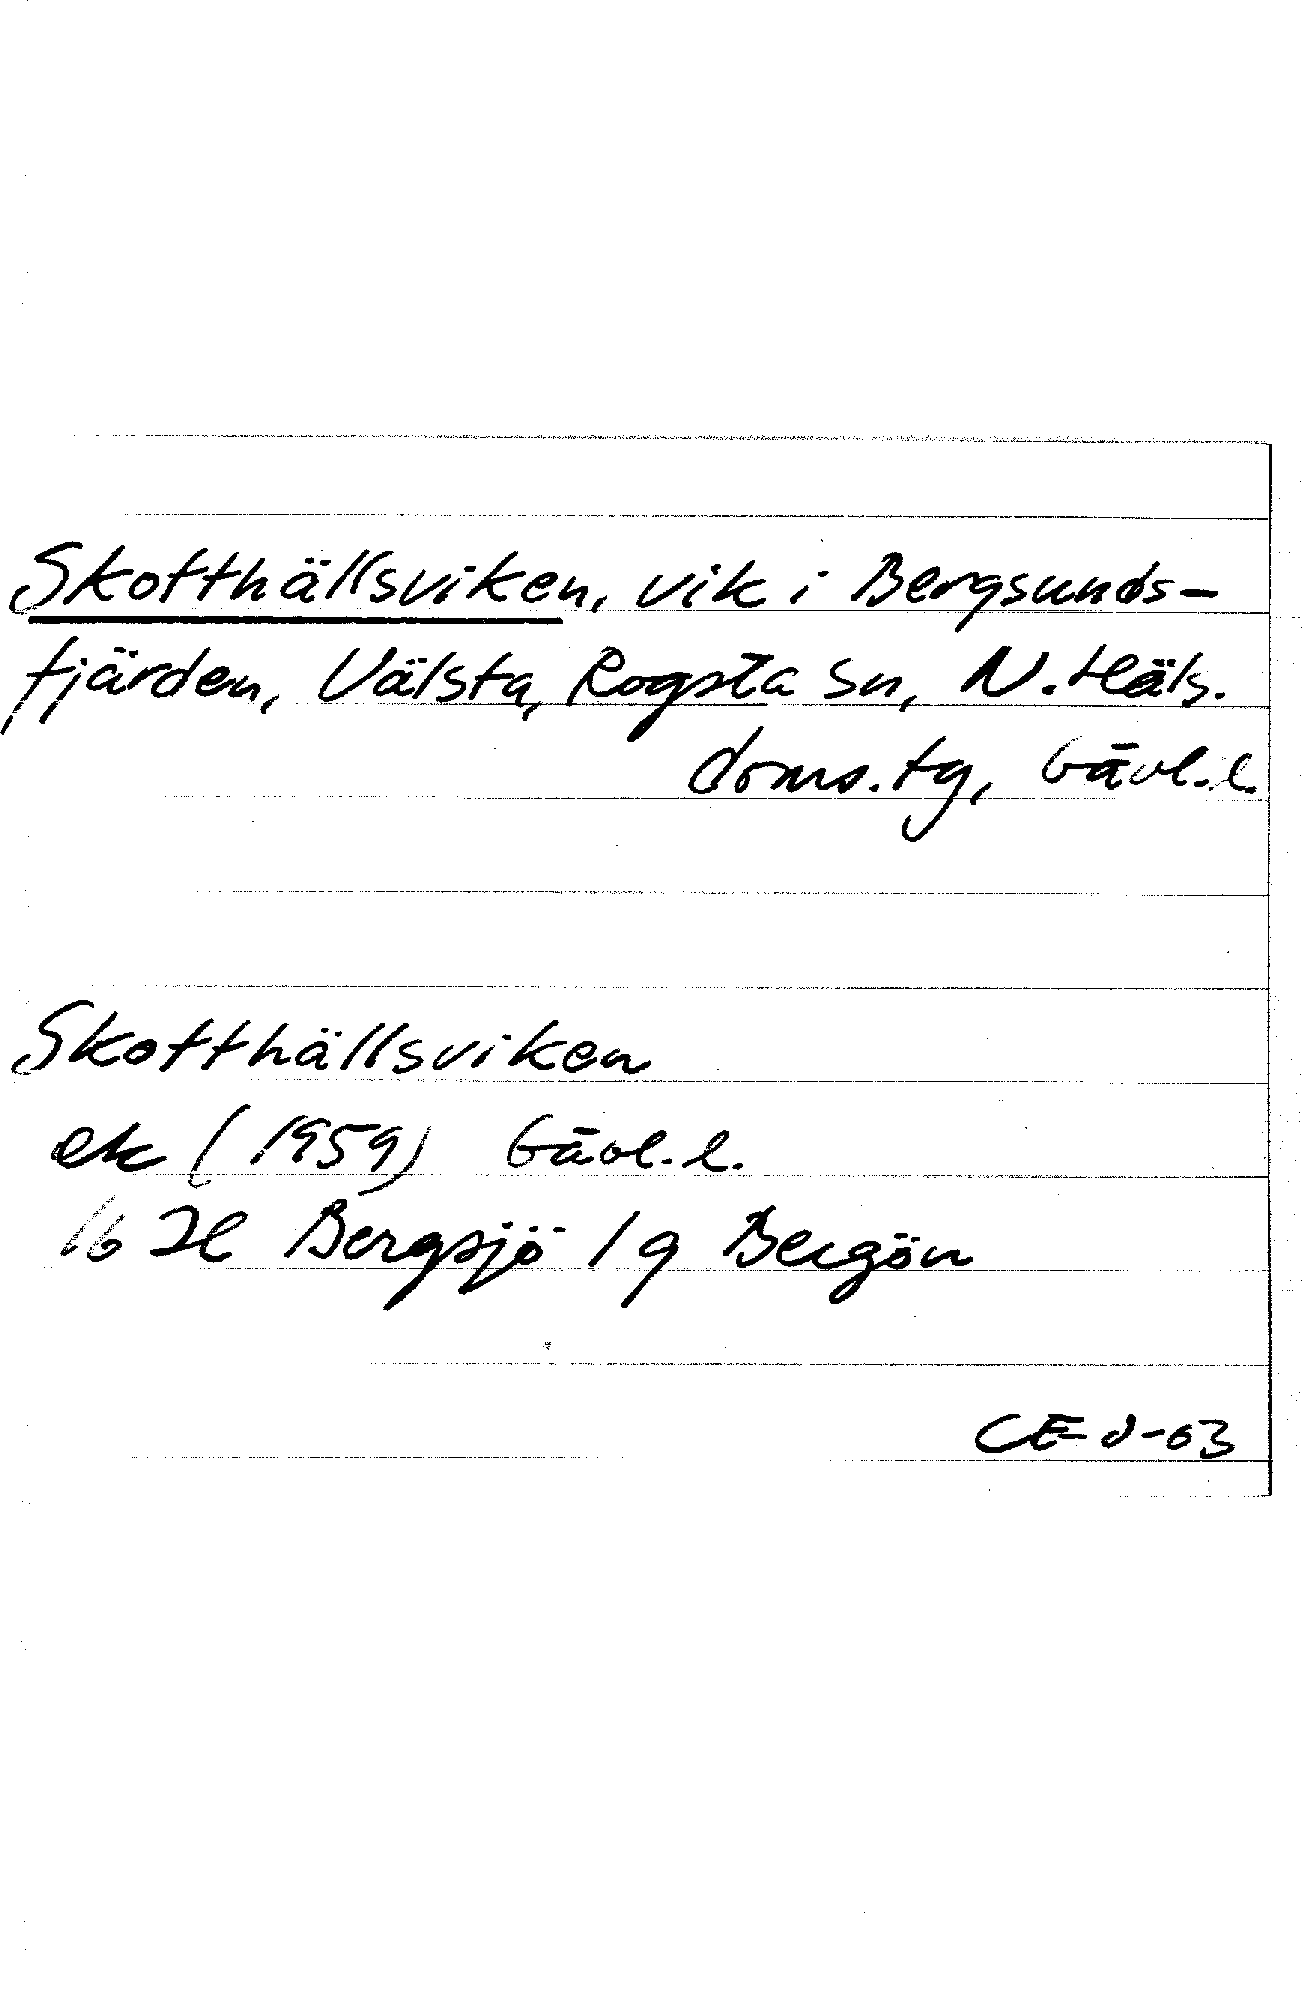 Skotthällsviken, vik i Bergsunds-
fjärden, Välsta, Rogsta sn, N. Häls.
doms. tg, Gävl. l.
Skotthällsviken
ek (1959) Gävl. l.
16 H Bergsjö 1 g Bergön
CE